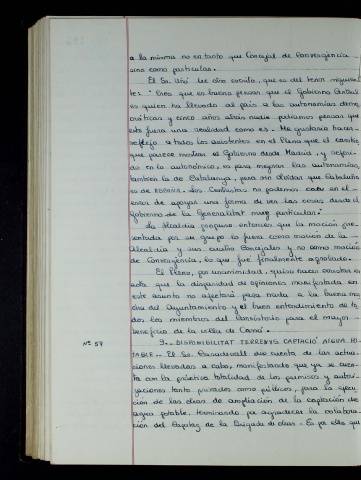 a la misma no en tanto que Concejal de Convergència -
sino como particular. -
El Sr. Uñó lee otro escrito, que es del tenor siguien-
te: "Creo que es bueno pensar que el Gobierno Central
es quien ha llevado al país a las autonomías demo-
cráticas y cinco años atrás nadie podíamos pensar que
esto fuera una realidad como es. Me gustaría hacer-
reflejo a todos los asistentes en el Pleno que el cambio
que parece mostrar el Gobierno desde Madrid, y referi-
do en lo autonómico, es para mejorar las autonomías,
también la de Catalunya, pero sin olvidar que Cataluña
es de ESPAÑA. Los Centristas no podemos caer en el -
error de apoyar una forma de ver las cosas desde el
Gobierno de la Generalitat muy particular."
La Alcaldía propuso entonces que la moción pre-
sentada por su grupo lo fuera como moción de la -
Alcaldía y sus cuatro Concejales y no como moción
de Convergència, lo que fué finalmente aprobado. -
El Pleno, por unanimidad, quiso hacer constar en
acta que la disparidad de opiniones manifestada en
este asunto no afectará para nada a la buena mar-
cha del Ayuntamiento y el buen entendimiento de to-
dos los miembros del Consistorio para el mayor -
beneficio de la villa de
Nº 57
9.- DISPONIBILITAT TERRENYS CAPTACIÓ AIGUA PO-
TABLE.- El Sr. Casadevall dió cuenta de las actua-
ciones llevadas a cabo, manifestando que ya se cuen-
ta con la práctica totalidad de los permisos y autori-
zaciones tanto privados como públicos, para la ejecu-
ción de las obras de ampliación de la captación de
agua potable, terminando por agradecer la colabora-
ción del Capataz de la Brigada de obras - Es por ello que